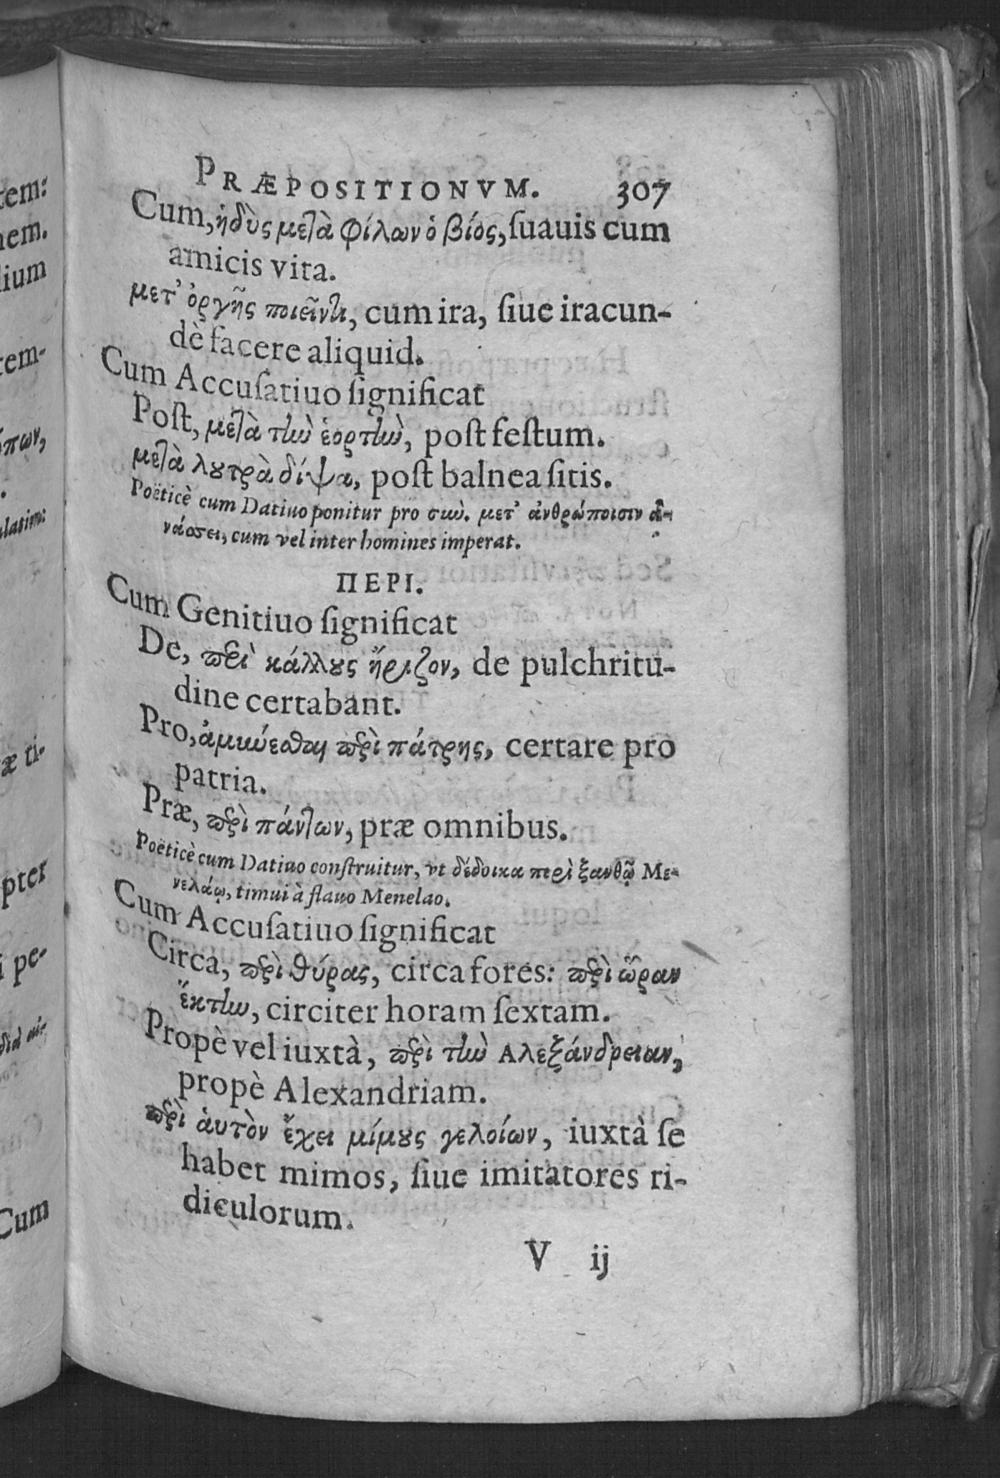 PRÆPOSITIONVM. 307
Cum, ἡδὺς μετὰ φίλων ὁ βίος, ſuauis cum
amicis vita.
μετ' ὀργῆς ποιεῖν τι, cum ira, ſiue iracun-
dè facere aliquid.
Cum Accuſatiuo ſignificat
Poſt, μετὰ τὴν ἑορτὴν, poſt feſtum.
μετὰ λουτρὰ δίψα, poſt balnea ſitis.
Poëticè cum Datiuo ponitur pro σὺν. μετ' ἀνθρώποισιν ἀ-
νάσσει, cum vel inter homines imperat.
ΠΕΡΙ.
Cum Genitiuo ſignificat
De, περὶ κάλλους ἤριζον, de pulchritu-
dine certabant.
Pro, ἀμύνεσθαι περὶ πάτρης, certare pro
patria.
Præ, περὶ πάντων, præ omnibus.
Poëticè cum Datiuo conſtruitur, vt δέδοικα περὶ ξανθῷ Με-
νελάῳ, timui à flauo Menelao.
Cum Accuſatiuo ſignificat
Circa, περὶ θύρας, circa fores: περὶ ὥραν
ἕκτην, circiter horam ſextam.
Propè vel iuxtà, περὶ τὴν Αλεξάνδρειαν,
propè Alexandriam.
περὶ ἁυτὸν ἔχει μίμους γελοίων, iuxtà ſe
habet mimos, ſiue imitatores ri-
diculorum.
V ij
tem:
nem.
lium
tem-
æ ti-
pter
i pe-
Cum